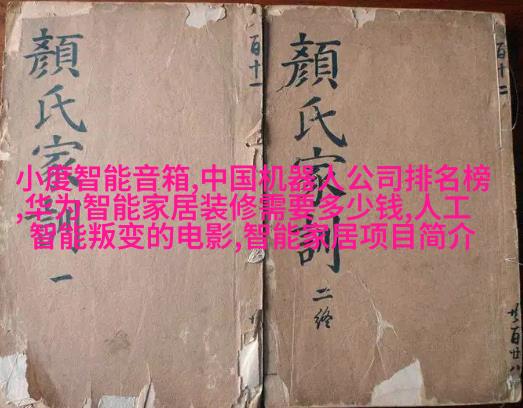 顏氏家訓 一
百十一
顏氏家訓 二終
百十二
小度智能音箱,中国机器人公司排名榜
,华为智能家居装修需要多少钱,人工
智能叛变的电影,智能家居项目简介